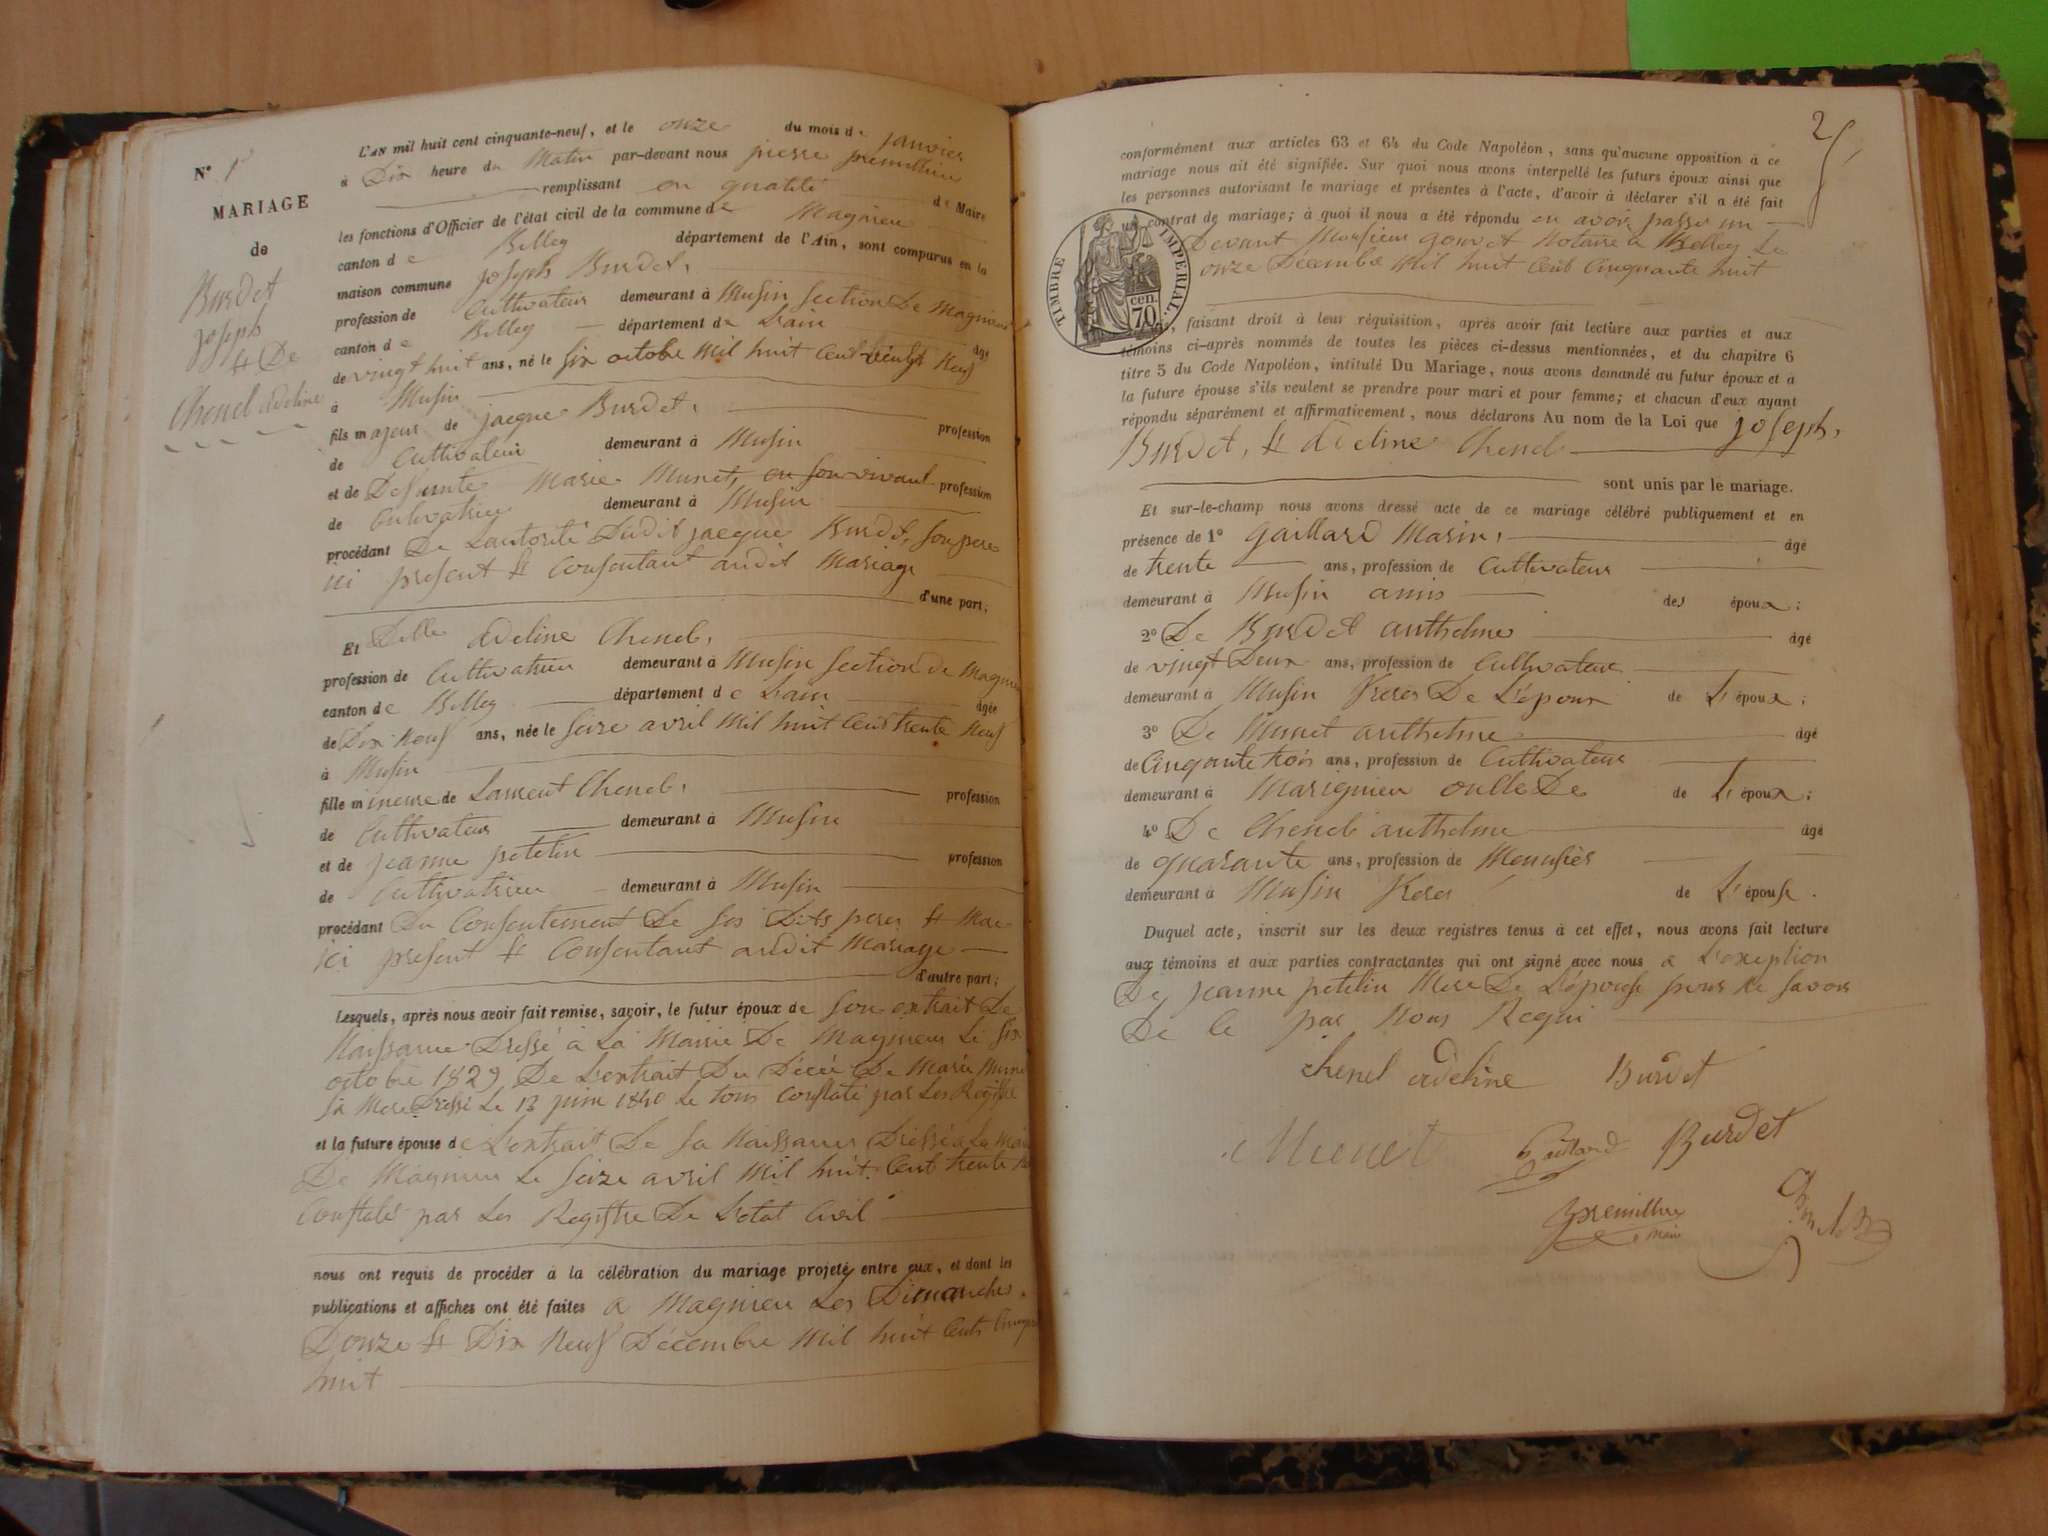 N° 1
MARIAGE
de
Burdet
joseph
et De
Chenel adeline
L'AN mil huit cent cinquante-neuf, et le onze du mois de janvier
à Dix heure du Matin par-devant nous pierre premillieu
remplissant en qualité de Maire
les fonctions d'Officier de l'état civil de la commune de Magnieu
canton de Belley département de l'Ain, sont comparus en la
maison commune joseph Burdet,
profession de Cultivateur demeurant à Musin section De Magnieu
canton de Belley département de Lain âgé
de vingt huit ans, né le six octobre mil huit Cent vingt Neuf
à Musin
fils majeur de jacque Burdet, profession
de Cultivateur demeurant à Musin
et de Defunte Marie Munet, en son vivant profession
de Cultivatrice demeurant à Musin
procédant De Lautorité Dudit jacque Burdet, son pere
ici present et Consentant audit Mariage
d'une part;
Et Delle adeline Chenel,
profession de Cultivatrice demeurant à Musin section de Magnieu
canton de Belley département de Lain âgée
de Dix Neuf ans, née le seize avril mil huit Cent trente Neuf
à Musin
fille mineure de Laurent Chenel, profession
de Cultivateur demeurant à Musin
et de jeanne petelin profession
de Cultivatrice demeurant à Musin
procédant Du Consentement De ses Dits peres et Mere
ici present et Consentant audit Mariage
d'autre part;
Lesquels, après nous avoir fait remise, savoir, le futur époux de son extrait De
Naissance Dressé à La Mairie De Magnieu Le six
octobre 1829 De L'extrait Du Décès De Marie Munet
sa Mere Dressé Le 13 juin 1840 Le tous Constaté par Les Registre
et la future épouse de L'extrait De sa Naissance Dressé à La Mairie
De Magnieu Le seize avril Mil huit Cent trente
Constaté par Les Registre De L'etat Civil
nous ont requis de procéder à la célébration du mariage projeté entre eux, et dont les
publications et affiches ont été faites a Magnieu Les Dimanches
Douze et Dix Neuf Décembre Mil huit Cents Cinquante
huit
2
conformément aux articles 63 et 64 du Code Napoléon, sans qu'aucune opposition à ce
mariage nous ait été signifiée. Sur quoi nous avons interpellé les futurs époux ainsi que
les personnes autorisant le mariage et présentes à l'acte, d'avoir à déclarer s'il a été fait
un contrat de mariage; à quoi il nous a été répondu en avoir passé un
Devant Monsieur gouvet Notaire à Belley Le
onze Decembre Mil huit Cent Cinquante huit
TIMBRE IMPERIAL
70 cen.
faisant droit à leur réquisition, après avoir fait lecture aux parties et aux
témoins ci-après nommés de toutes les pièces ci-dessus mentionnées, et du chapitre 6
titre 5 du Code Napoléon, intitulé Du Mariage, nous avons demandé au futur époux et à
la future épouse s'ils veulent se prendre pour mari et pour femme; et chacun d'eux ayant
répondu séparément et affirmativement, nous déclarons Au nom de la Loi que joseph,
Burdet, et adeline Chenel
sont unis par le mariage.
Et sur-le-champ nous avons dressé acte de ce mariage célébré publiquement et en
présence de 1° gaillard Marin, âgé
de trente ans, profession de Cultivateur
demeurant à Musin amis des époux;
2° De Burdet anthelme âgé
de vingt Deux ans, profession de Cultivateur
demeurant à Musin frere De L'époux de L'époux;
3° De Munet anthelme âgé
de Cinquante trois ans, profession de Cultivateur
demeurant à Marignieu oncle De de L'époux;
4° De Chenel anthelme âgé
de quarante ans, profession de Menusier
demeurant à Musin frere de L'épouse.
Duquel acte, inscrit sur les deux registres tenus à cet effet, nous avons fait lecture
aux témoins et aux parties contractantes qui ont signé avec nous a L'exeption
De jeanne petelin Mere De L'épouse pour ne savoir
De ce par Nous Requi
chenel adeline Burdet
Munet Gaillard Burdet
premillieu
maire